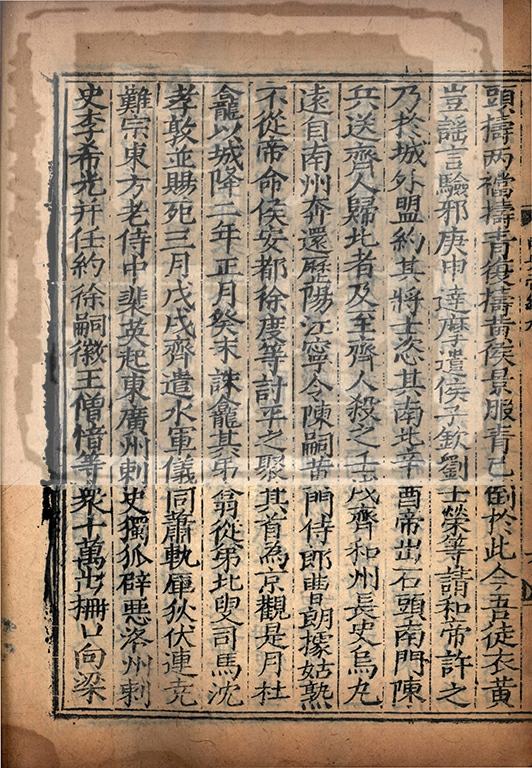 頭擣两襠擣青復擣黄侯景服青已倒於此今吾徒衣黄
豈謡言驗邪庚申逹摩遣侯子欽劉士榮等請和帝許之
乃於城外盟約其將士恣其南北辛酉帝出石頭南門陳
兵送齊人歸北者及至齊人殺之壬戌齊和州長史烏丸
遠自南州奔還歷陽江寧令陳嗣黄門侍郎曹朗據姑熟
不從帝命侯安都徐度等討平之聚其首為京觀是月杜
龕以城降二年正月癸未誅龕其弟翕從弟北叟司馬沈
孝敦並賜死三月戊戌齊遣水軍儀同蕭軌庫狄伏連尭
難宗東方老侍中裴英起東廣州刺史獨孤辟惡洛州刺
史李希光并任約徐嗣徽王僧愔等衆十萬出柵口向梁